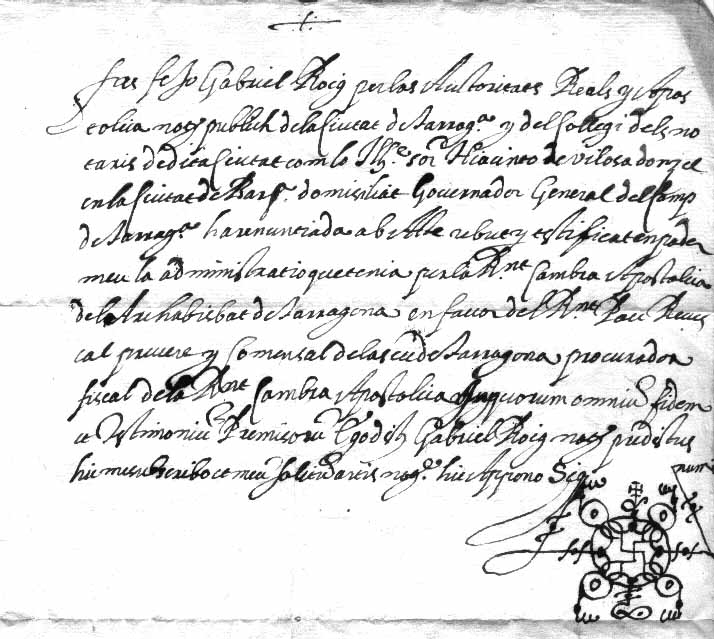 fas fe Jo Gabriel Roig per las Autoritats Reals y Apos
tolica nott publich de la Ciutat de Tarrag.ª y del Collegi dels no
taris de dita Ciutat com lo Ill.e sor Hiacinto de Vilosa donzel
en la Ciutat de Barª. domisiliat Governador General del Camp
de Tarrag.ª ha renuntiada ab Acte rebut y testificat en poder
meu la administratio que tenia per la Rnt Cambra Apostolica
del Archabisbat de Tarragona en favor del Rnt Pau
cal prevere y Comensal de la seu de Tarragona procurador
fiscal de la Rnt Cambra Apostolica In quorum omniu fidem
et testimoniu Premisoru Ego dictus Gabriel Roig nott predictus
hic me subscribo et meu solitu artis not.e hic Appono Sig
num